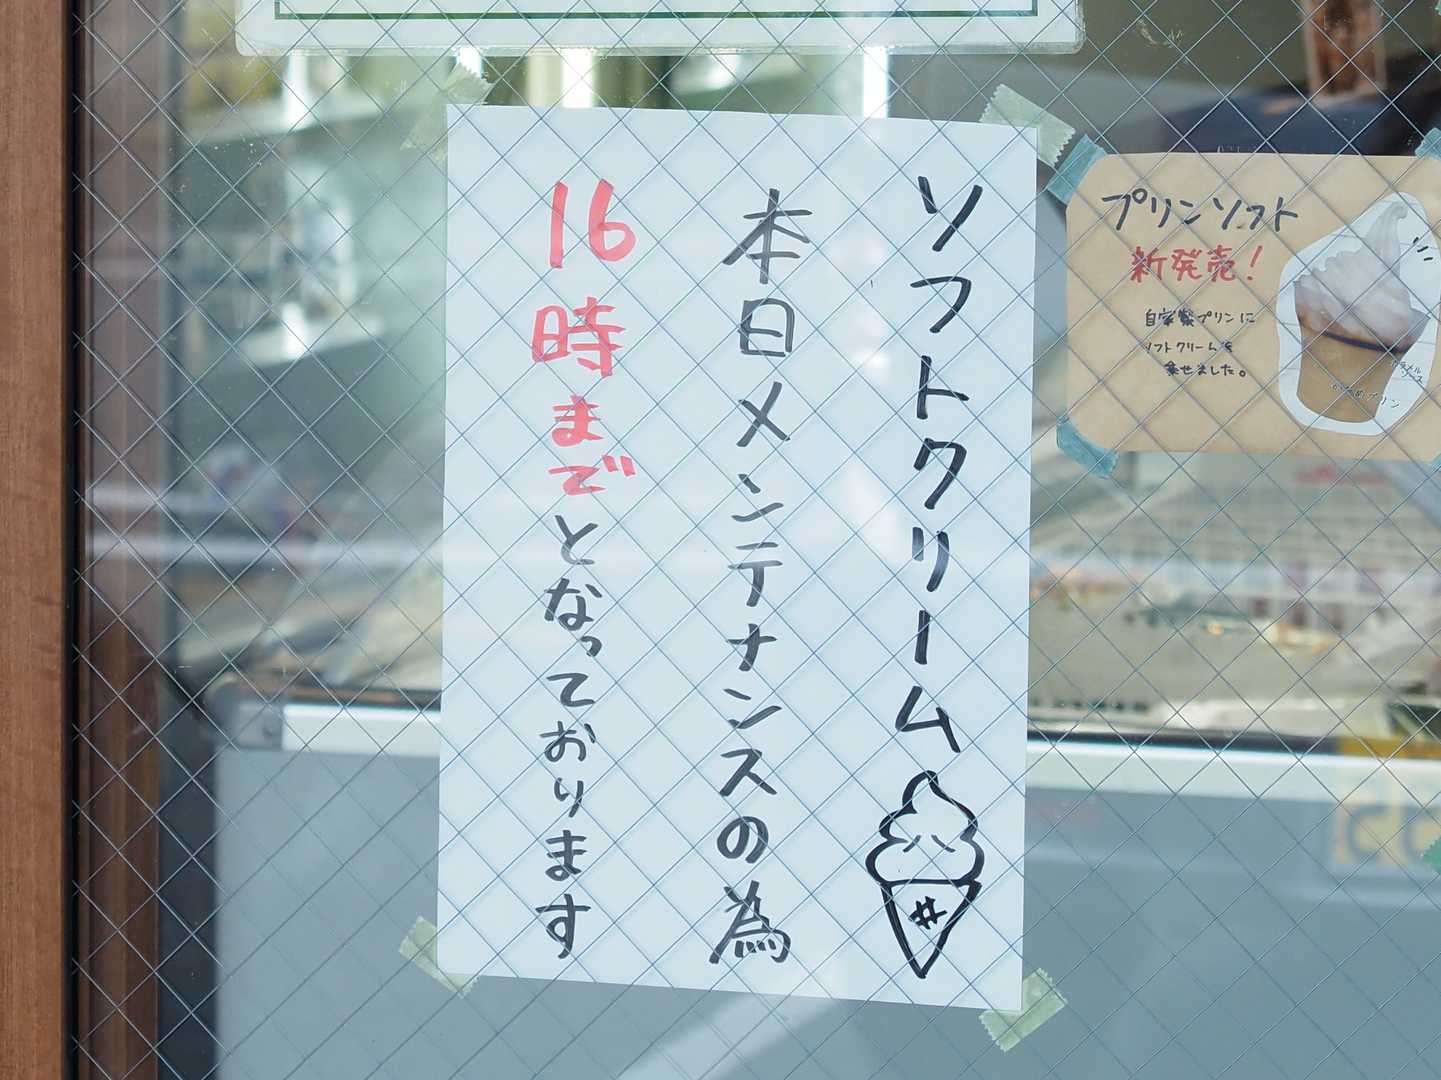 ソフトクリーム
本日メンテナンスの為
16時までとなっております
プリンソフト
新発売!
自家製プリンに
ソフトクリームを
乗せました。
カラメル
ソース